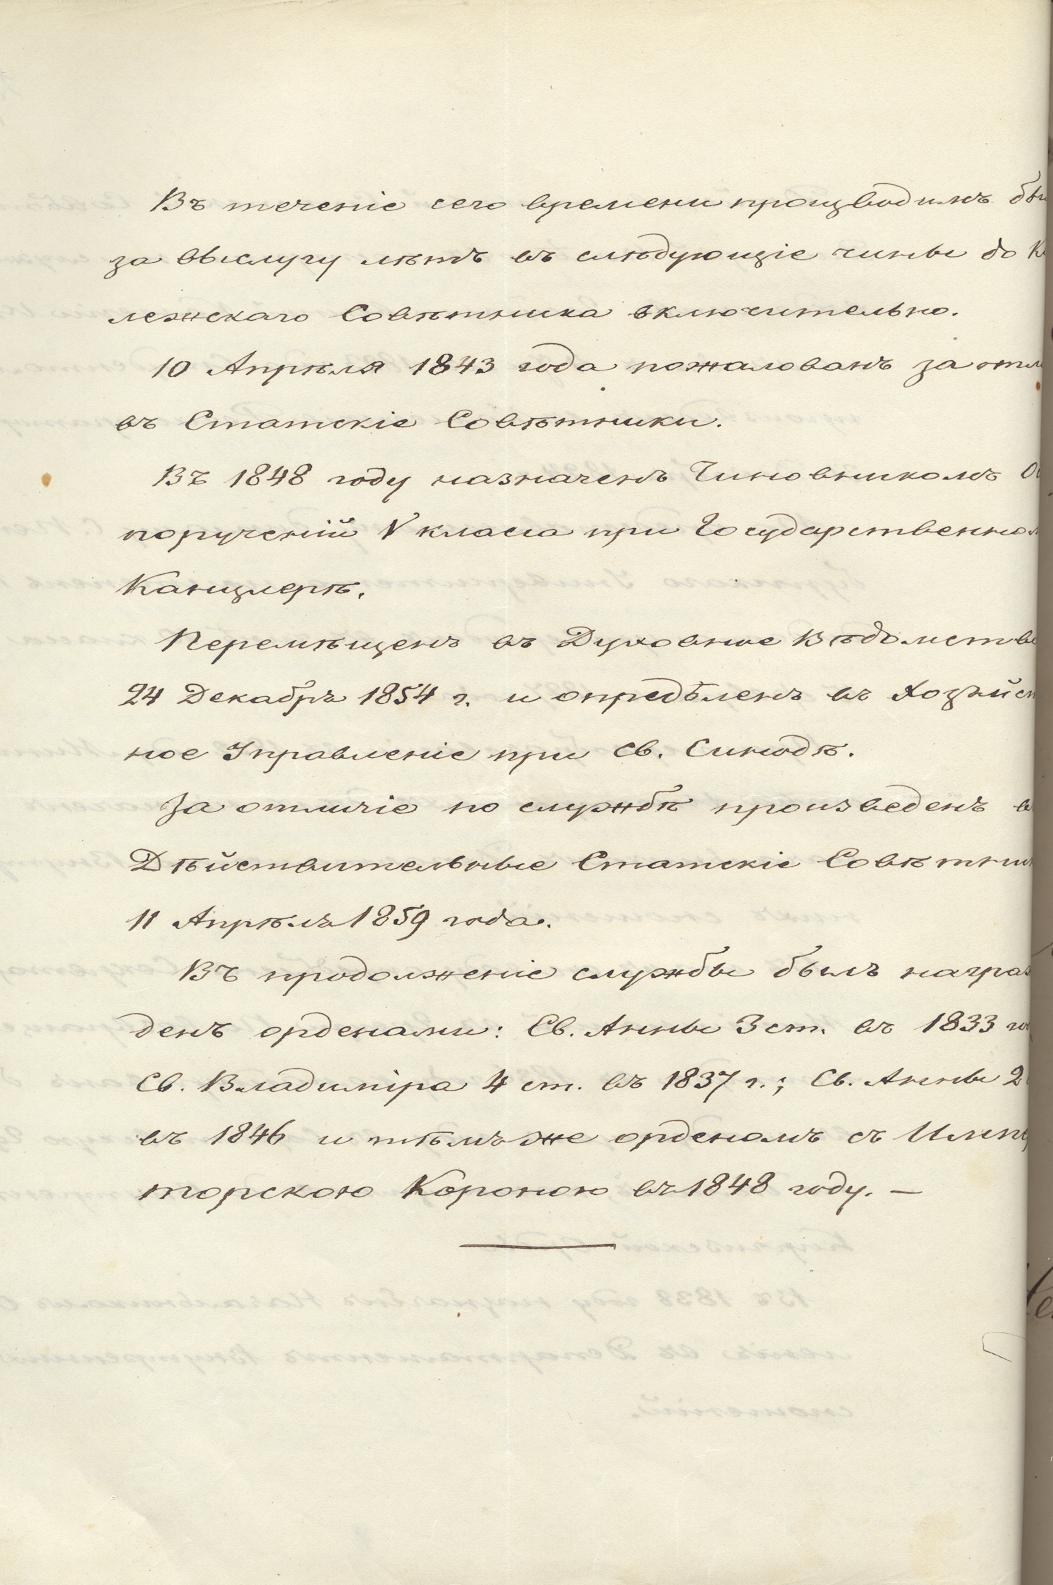 Въ теченіе сего времени производимъ бы
за выслугу лѣтъ въ слѣдующіе чины до К
лежскаго Совѣтника включительно.
10 Апрѣля 1843 года пожалованъ за отли
въ Статскіе Совѣтники.
Въ 1848 году назначенъ Чиновникомъ О
порученій V класса при Государственно
Канцлерѣ.
Перемѣщенъ въ Духовное Вѣдомств
24 Декабря 1854 г. и опредѣленъ въ Хозяйст
ное Управленіе при Св. Синодѣ.
За отличіе по службѣ произведенъ в
Дѣйствительные Статскіе Совѣтни
11 Апрѣля 1859 года.
Въ продолженіе службы былъ награж
денъ орденами: Св. Анны 3 ст. въ 1833 го
Св. Владиміра 4 ст. въ 1837 г.; Св. Анны 2
въ 1846 и тѣмъ же орденомъ съ Импе
торскою Короною въ 1848 году. —